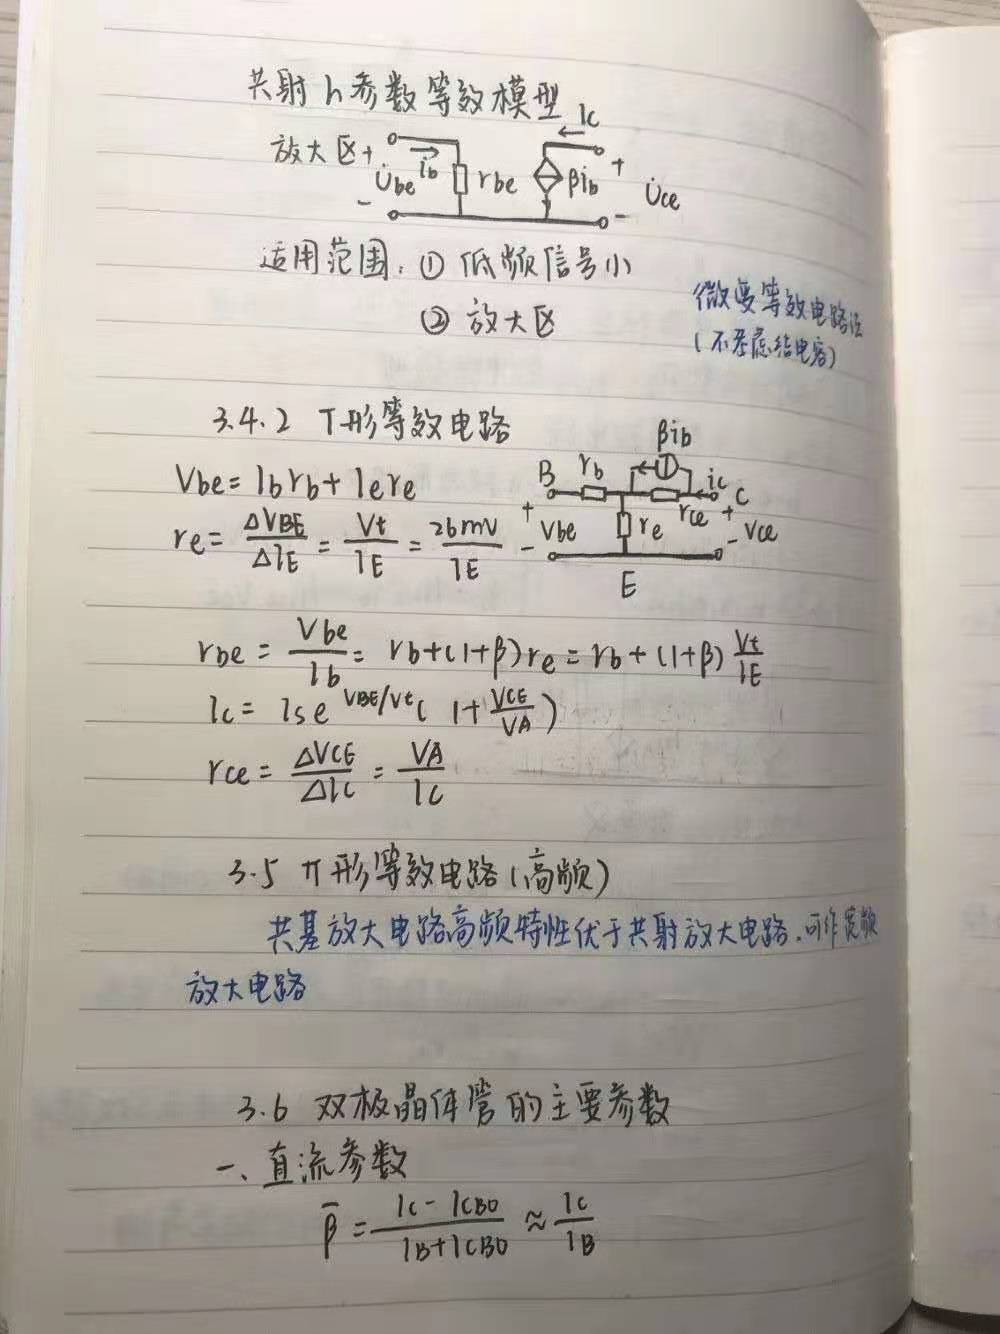 共射h参数等效模型
放大区 + U̇be - ib rbe βib Ic + U̇ce -
适用范围：① 低频信号小
② 放大区
微变等效电路法
(不考虑结电容)
3.4.2 T形等效电路
Vbe = Ibrb + Iere
re = ΔVBE/ΔIE = Vt/IE = 26mV/IE
B rb βib ic C rce re + Vbe - + Vce - E
rbe = Vbe/Ib = rb+(1+β)re = rb+(1+β) Vt/IE
Ic = Is e^VBE/Vt (1+ VCE/VA)
rce = ΔVCE/ΔIC = VA/IC
3.5 π形等效电路(高频)
共基放大电路高频特性优于共射放大电路.可作宽频
放大电路
3.6 双极晶体管的主要参数
一、直流参数
β̄ = IC-ICBO/IB+ICBO ≈ IC/IB